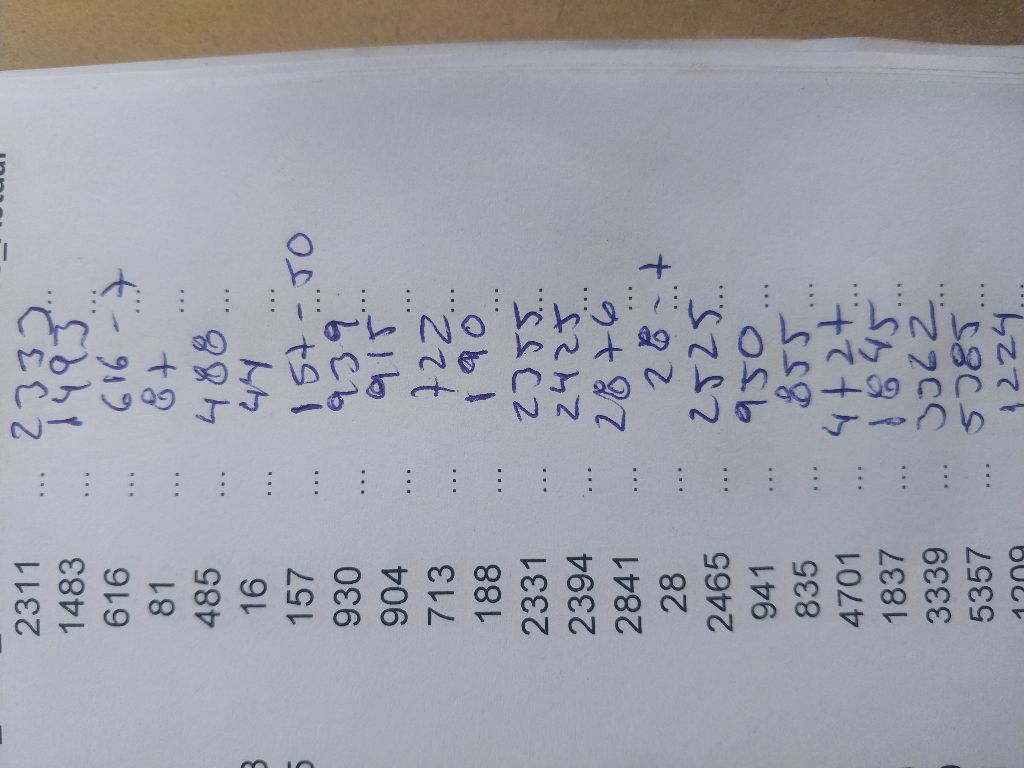 2311 ... 2333 ...
1483 ... 1493 ...
616 ... 616 - 7 ...
81 ... 87 ...
485 ... 488 ...
16 ... 44 ...
157 ... 157 - 50 ...
930 ... 939 ...
904 ... 915 ...
713 ... 722 ...
188 ... 190 ...
2331 ... 2355 ...
2394 ... 2425 ...
2841 ... 2876 ...
28 ... 28 - 7 ...
2465 ... 2525 ...
941 ... 950 ...
835 ... 855 ...
4701 ... 4727 ...
1837 ... 1845 ...
3339 ... 3362 ...
5357 ... 5385 ...
1209 1224